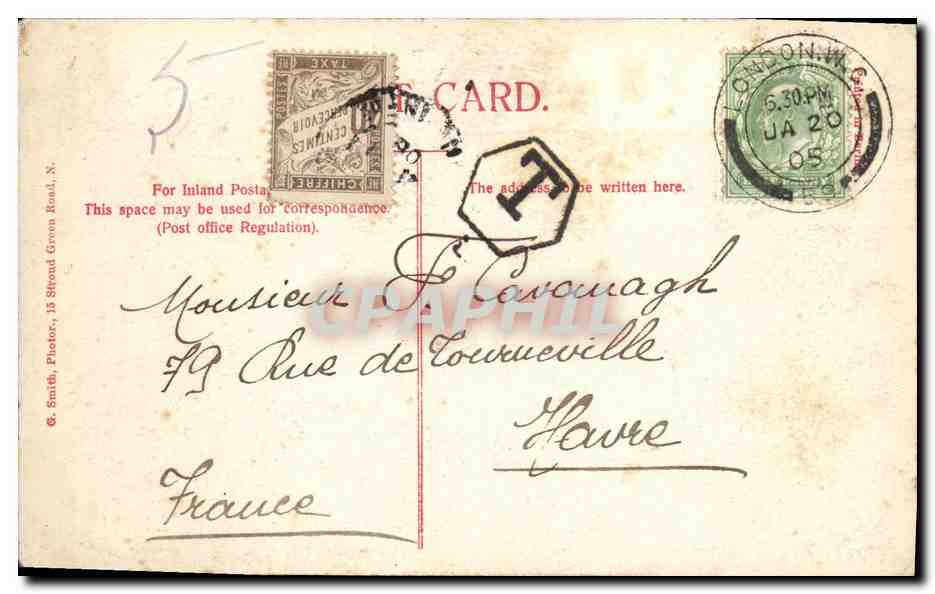 5
CHIFFRE
TAXE
10
CENTIMES
A PERCEVOIR
E CARD.
T
LONDON.W.C
6.30.PM
JA 20
05
For Inland Posta
This space may be used for correspondence.
(Post office Regulation).
The address to be written here.
G. Smith, Photor., 15 Stroud Green Road, N.
Monsieur F. Cavanagh
79 Rue de Tourneville
Havre
France
CPAPHIL